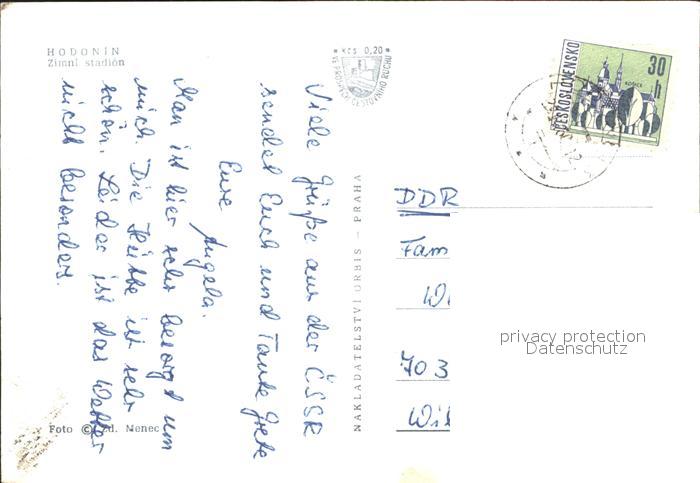 HODONÍN
Zimní stadión
KČS 0,20
ČESKOSLOVENSKO
30 h
Viele Grüße aus der ČSSR
sendet Euch und Tante Grete
Eure
Angela.
Man ist hier sehr besorgt um
mich. Die Hütte ist sehr
schön. Leider ist das Wetter
nicht besonders.
NAKLADATELSTVÍ ORBIS — PRAHA
DDR
Fam
Wi
703
Wil
privacy protection
Datenschutz
Foto © Zd. Menec